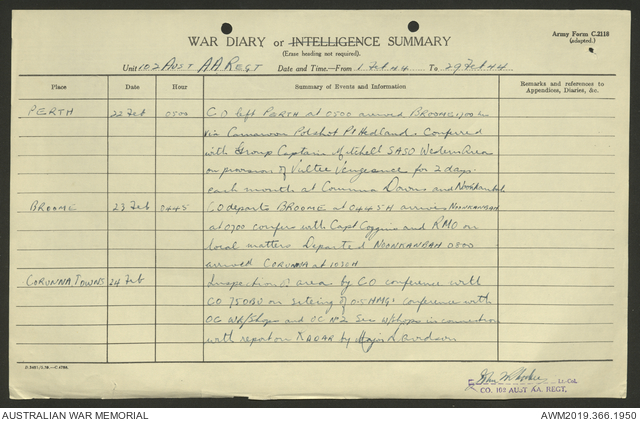 Army Form C.2118
(adapted.)
WAR DIARY or INTELLIGENCE SUMMARY
(Erase heading not required).
Unit 102 AUST AA REGT Date and Time.—From 1 Feb 44 To 29 Feb 44
Place Date Hour Summary of Events and Information Remarks and references to Appendices, Diaries, &c.
PERTH 22 Feb 0500 CO left PERTH at 0500 arrived BROOME 1700
via Carnarvon Potshot Pt Hedland. Conferred
with Group Captain Mitchell SASO Western Area
on provision of Vultee Vengeance for 2 days
each month at Corunna Downs and Noonkanbah
BROOME 23 Feb 0445 CO departs BROOME at 0445H arrives NOONKANBAH
at 0700 confers with Capt Coggins and RMO on
local matters Departed NOONKANBAH 0800
arrived CORUNNA at 1030H
CORUNNA DOWNS 24 Feb Inspection of area by CO conference with
CO 75OBU on siteing of 0.5 HMGs conference with
OC Wkshops and OC No 2 Sec W/shops in connection
with report on RADAR by Major Davidson
CO. 102 AUST AA. REGT.
AUSTRALIAN WAR MEMORIAL AWM2019.366.1950